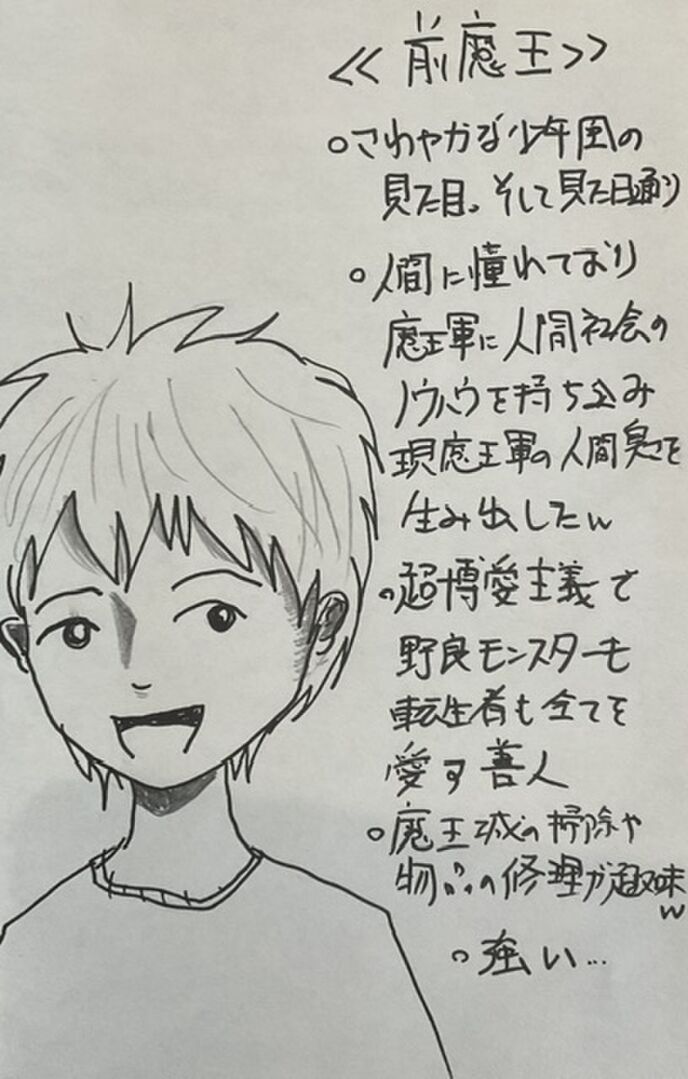 <<前魔王>>
○さわやかな少年風の
見た目。そして見た目通り
○人間に憧れており
魔王軍に人間社会の
ノウハウを持ち込み
現魔王軍の人間臭さを
生み出したw
○超博愛主義で
野良モンスターも
転生者も全てを
愛す善人
○魔王城の掃除や
物品の修理が趣味
w
○強い…